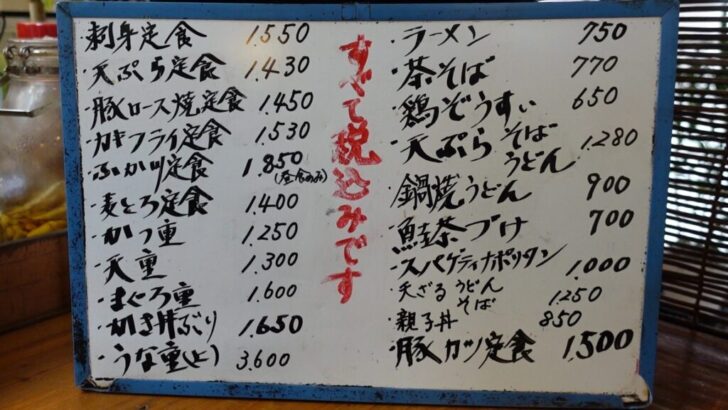 ・刺身定食 1,550
・天ぷら定食 1,430
・豚ロース焼定食 1,450
・カキフライ定食 1,530
定食 1,850
・麦とろ定食 1,400
・かつ重 1,250
・天重 1,300
・まぐろ重 1,600
・かき丼ぶり 1,650
・うな重(上) 3,600
すべて税込みです
・ラーメン 750
・茶そば 770
・鶏ぞうすい 650
・天ぷら そば うどん 1,280
・鍋焼うどん 900
・鮭茶づけ 700
・スパゲティナポリタン 1,000
・天ざる うどん そば 1,250
・親子丼 850
・豚カツ定食 1,500